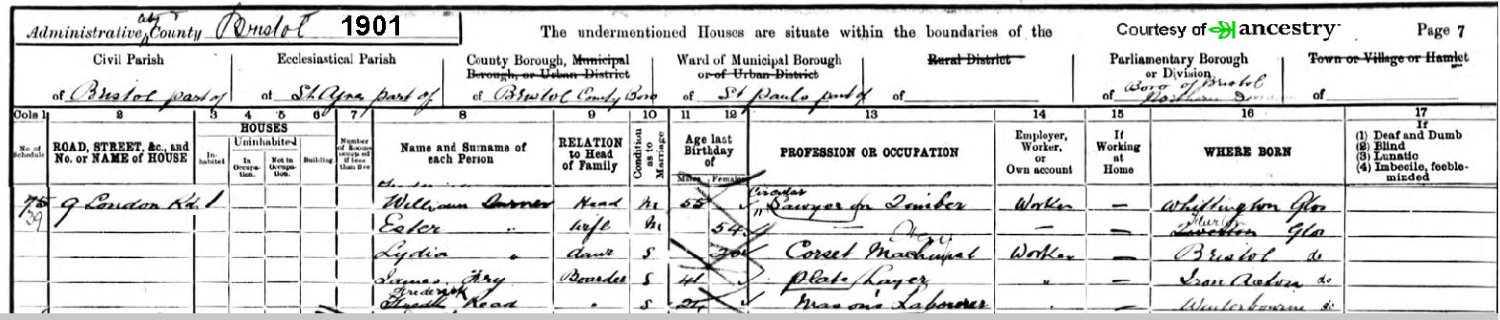 Administrative County Bristol 1901 The undermentioned Houses are situate within the boundaries of the Courtesy of ancestry Page 7
Civil Parish Ecclesiastical Parish County Borough, Municipal Borough, or Urban District Ward of Municipal Borough or of Urban District Rural District Parliamentary Borough or Division Town or Village or Hamlet
of Bristol part of of St Agnes part of of Bristol County Boro of St Pauls part of of of Boro of Bristol Northern of
Cols 1 2 3 4 5 6 7 8 9 10 11 12 13 14 15 16 17
No. of Schedule ROAD, STREET, &c., and No. or NAME of HOUSE HOUSES Inhabited Uninhabited In Occupation. Not in Occupation. Building. Number of Rooms occupied if less than five Name and Surname of each Person RELATION to Head of Family Condition as to Marriage Age last Birthday of Males Females PROFESSION OR OCCUPATION Employer, Worker, or Own account If Working at Home WHERE BORN If (1) Deaf and Dumb (2) Blind (3) Lunatic (4) Imbecile, feeble-minded
75 9 London Rd. 1 William Head M 55 Circular Sawyer Timber Worker – Whittington Glos
39 Ester " Wife M 54 – – – Glos
Lydia " Daur S Corset Machinist Worker – Bristol do
James Fry Boarder S 41 Plate Layer " – Iron Acton do
Frederick Read " S Mason's Labourer " – Winterbourne do